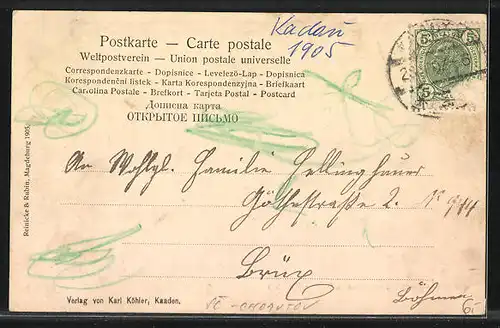 Kadaň
1905
Postkarte – Carte postale
Weltpostverein – Union postale universelle
Correspondenzkarte - Dopisnice - Levelező-Lap - Dopisnica
Korespondenční listek - Karta Korespondenzyjna - Briefkaart
Cartolina Postale - Brefkort - Tarjeta Postal - Postcard
Дописна карта
ОТКРЫТОЕ ПИСЬМО
5 5
5
An Wohlgb. Familie
Göthestraße 2. No 944
Brüx
Böhmen
Reinicke & Rubin, Magdeburg 1905
Verlag von Karl Köhler, Kaaden.